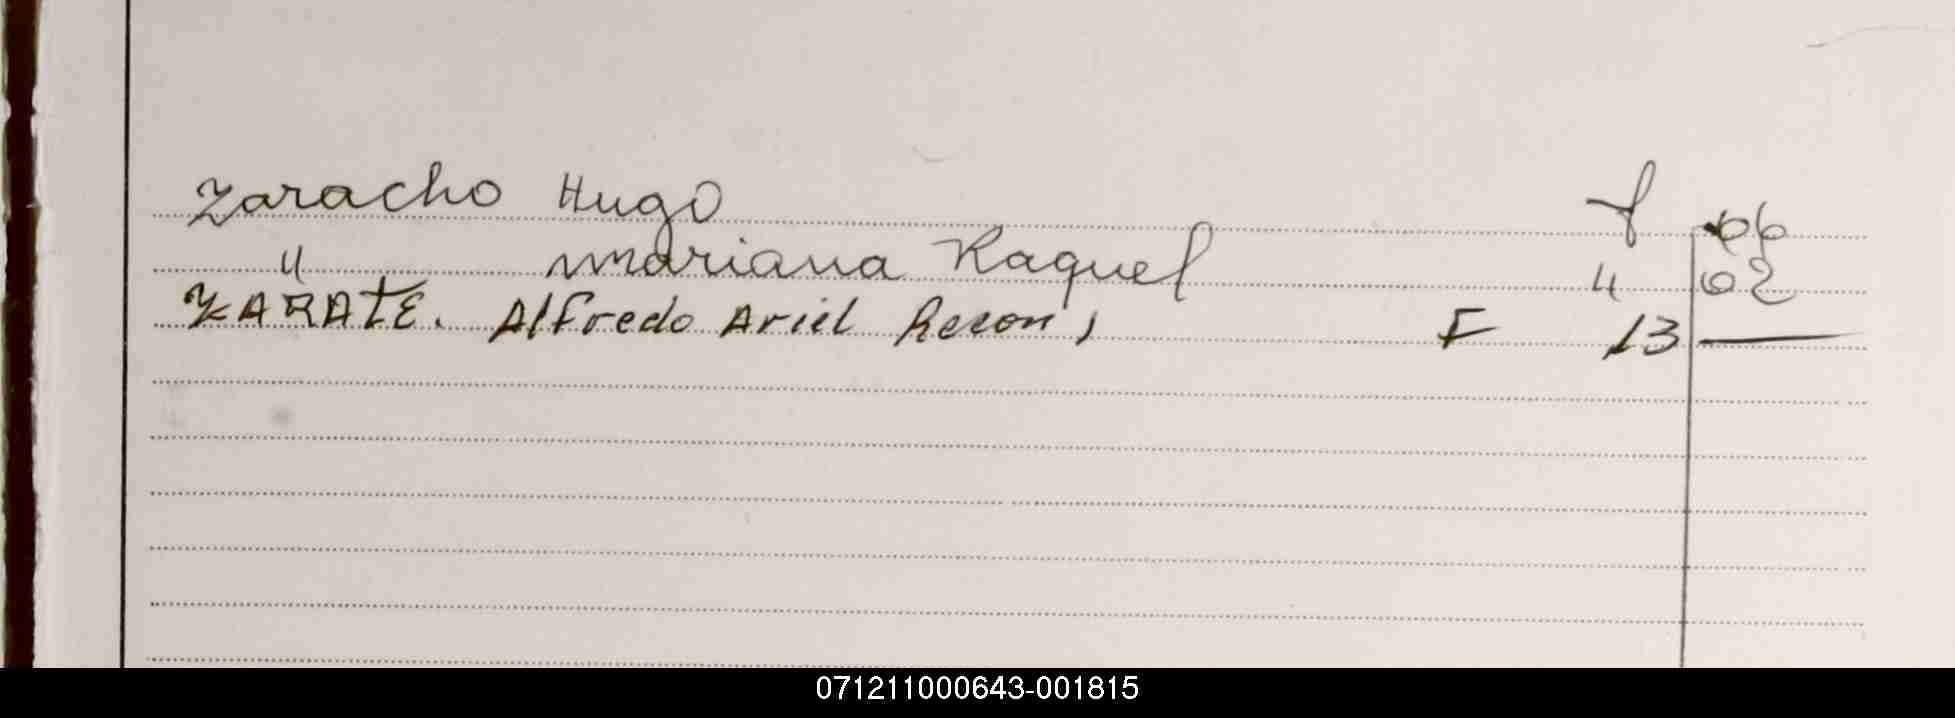 Zaracho Hugo f 66
" Mariana Raquel " 62
ZARATE. Alfredo Ariel F 13 —
071211000643-001815